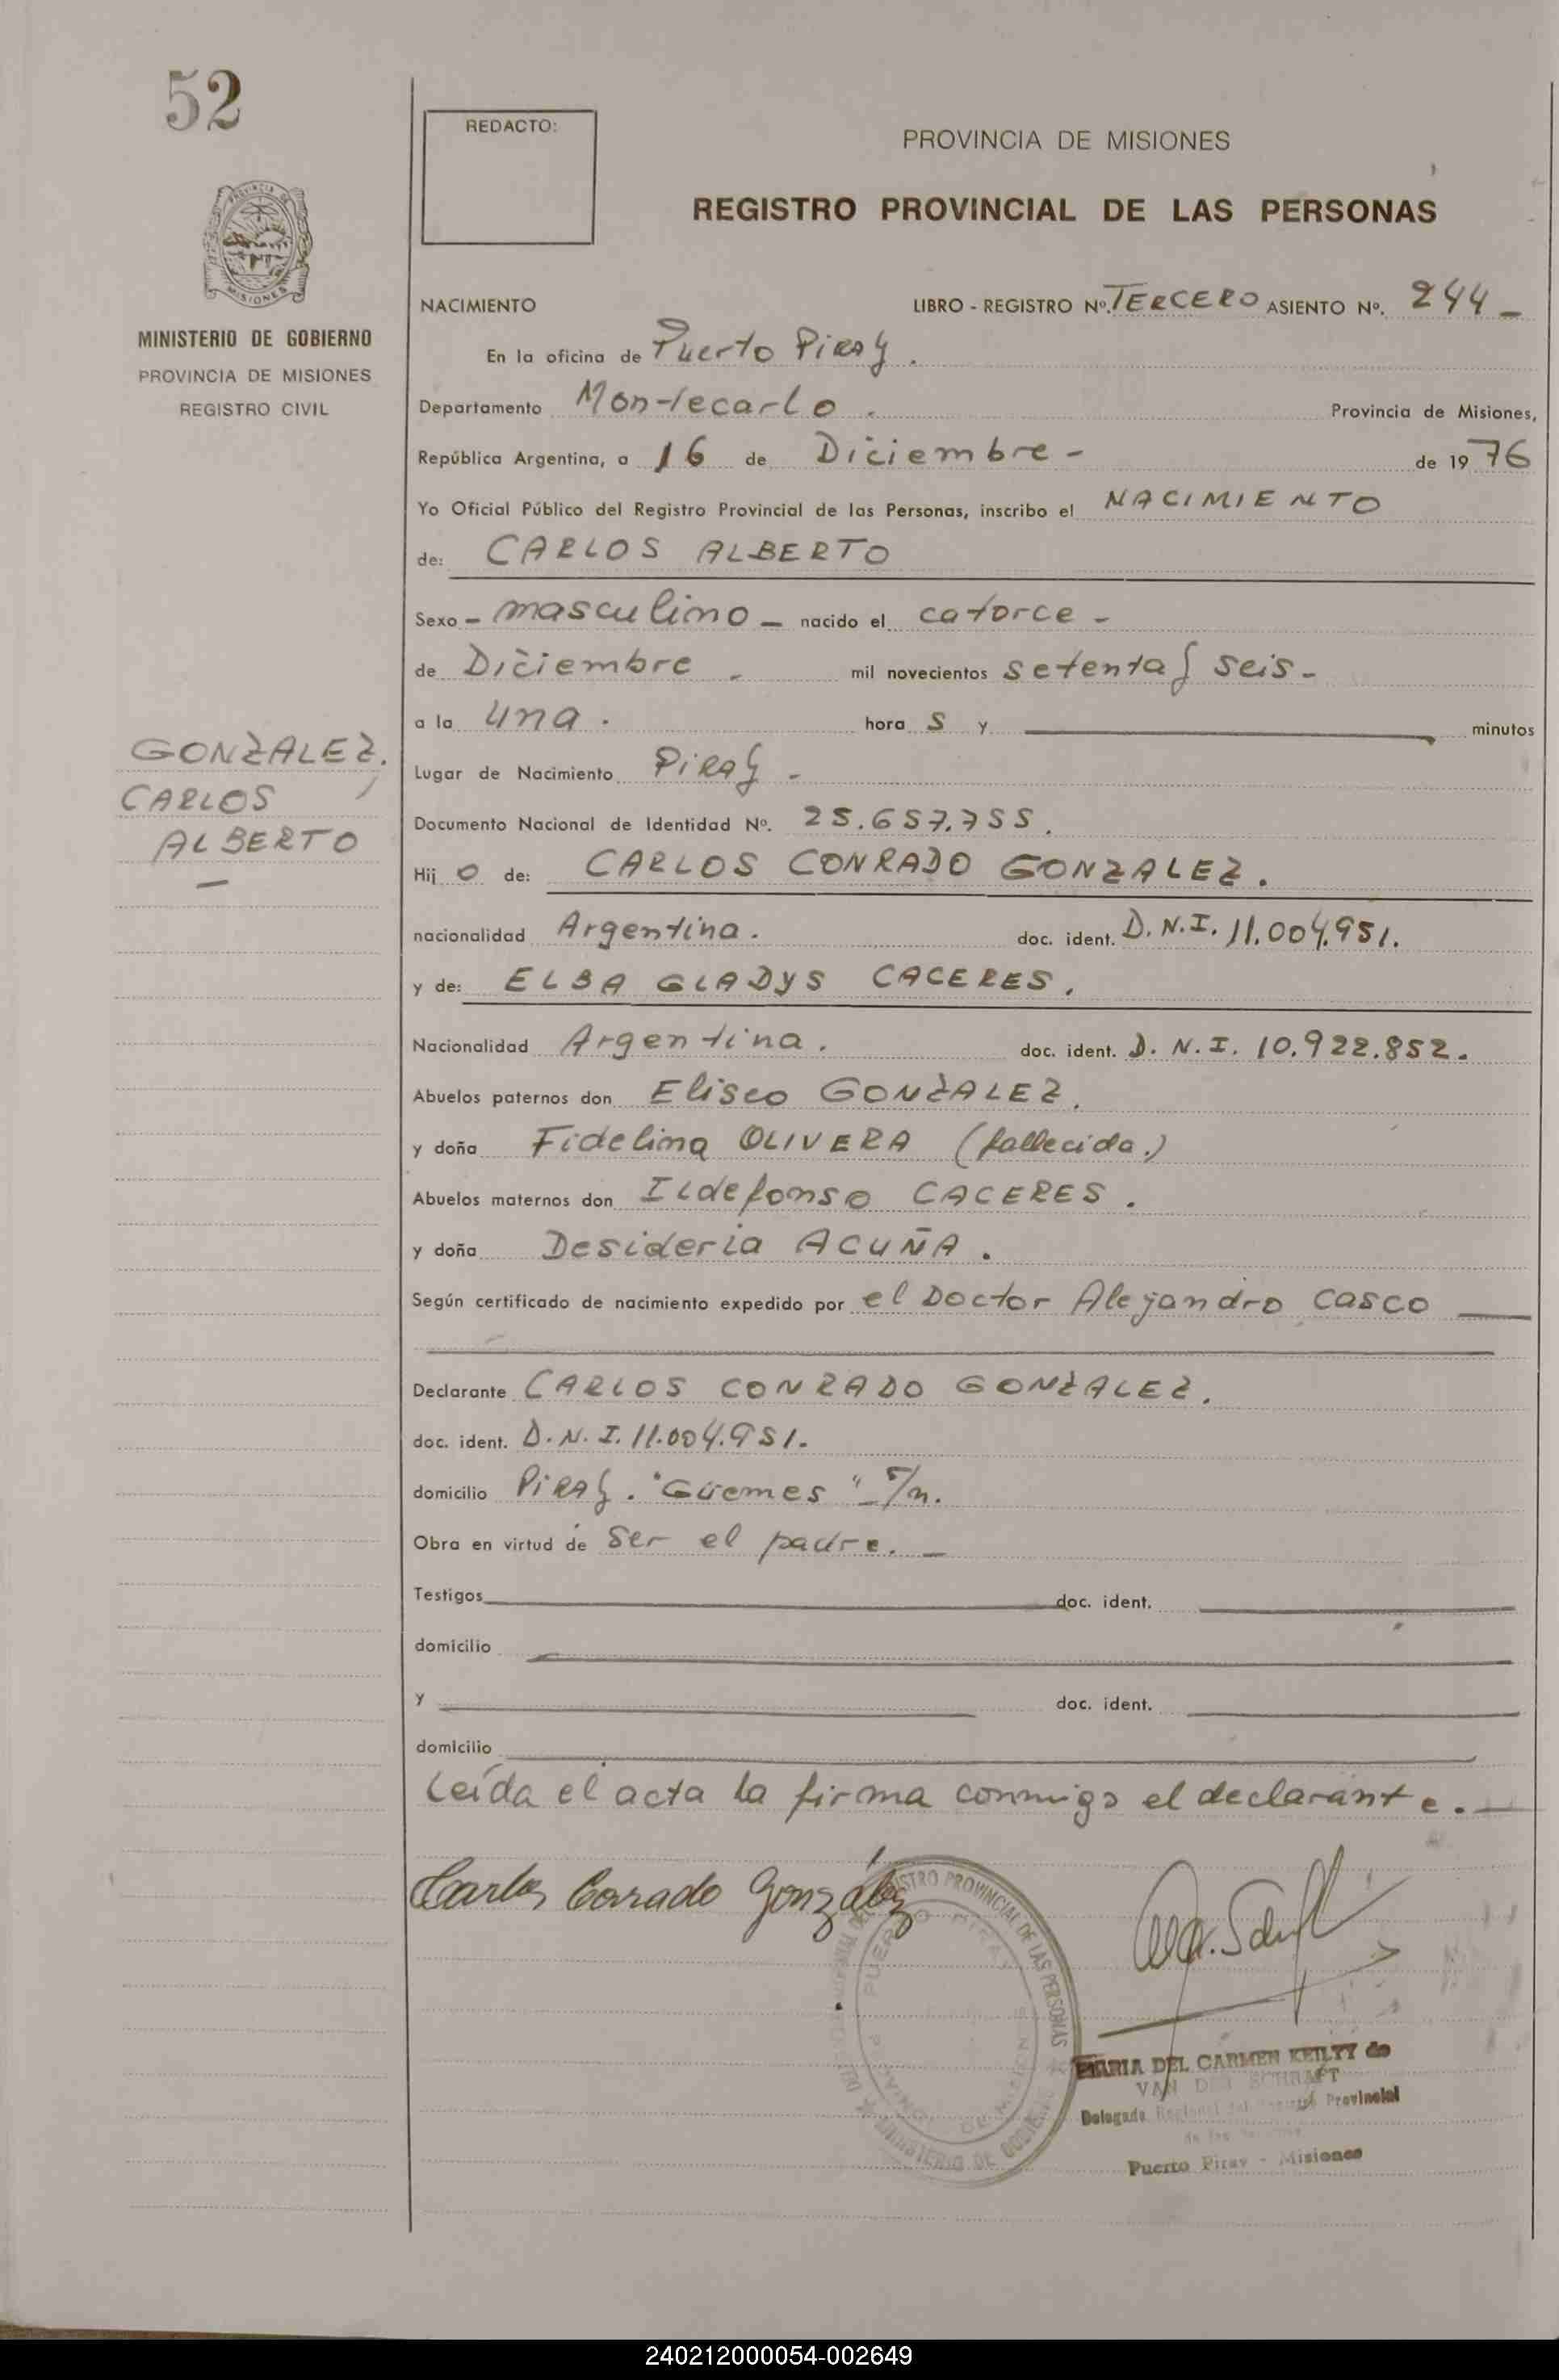 52
REDACTO:
PROVINCIA DE MISIONES
REGISTRO PROVINCIAL DE LAS PERSONAS
MISIONES
MINISTERIO DE GOBIERNO
PROVINCIA DE MISIONES
REGISTRO CIVIL
NACIMIENTO LIBRO - REGISTRO Nº. TERCERO ASIENTO Nº. 244 -
En la oficina de Puerto Piray.
Departamento Montecarlo. Provincia de Misiones,
República Argentina, a 16 de Diciembre - de 1976
Yo Oficial Público del Registro Provincial de las Personas, inscribo el NACIMIENTO
de: CARLOS ALBERTO
Sexo - masculino - nacido el catorce -
de Diciembre - mil novecientos setenta y seis -
a la una. hora s y minutos
GONZALEZ,
CARLOS
ALBERTO
Lugar de Nacimiento Piray -
Documento Nacional de Identidad Nº. 25.657.755.
Hij o de: CARLOS CONRADO GONZALEZ.
nacionalidad Argentina. doc. ident. D.N.I. 11.004.951.
y de: ELBA GLADYS CACERES.
Nacionalidad Argentina. doc. ident. D.N.I. 10.922.852.
Abuelos paternos don Eliseo GONZALEZ.
y doña Fidelina OLIVERA (fallecida.)
Abuelos maternos don Ildefonso CACERES.
y doña Desideria ACUÑA.
Según certificado de nacimiento expedido por el Doctor Alejandro Casco
Declarante CARLOS CONRADO GONZALEZ.
doc. ident. D.N.I. 11.004.951.
domicilio Piray. "Güemes" - s/n.
Obra en virtud de ser el padre. -
Testigos doc. ident.
domicilio
y doc. ident.
domicilio
Leída el acta la firma conmigo el declarante. -
Carlos Conrado González
REGISTRO PROVINCIAL DE LAS PERSONAS
PUERTO PIRAY
MINISTERIO DE GOBIERNO
MARIA DEL CARMEN KEILTY de
VAN DER SCHRAFT
Delegada Regional del Registro Provincial
de las Personas
Puerto Piray - Misiones
240212000054-002649